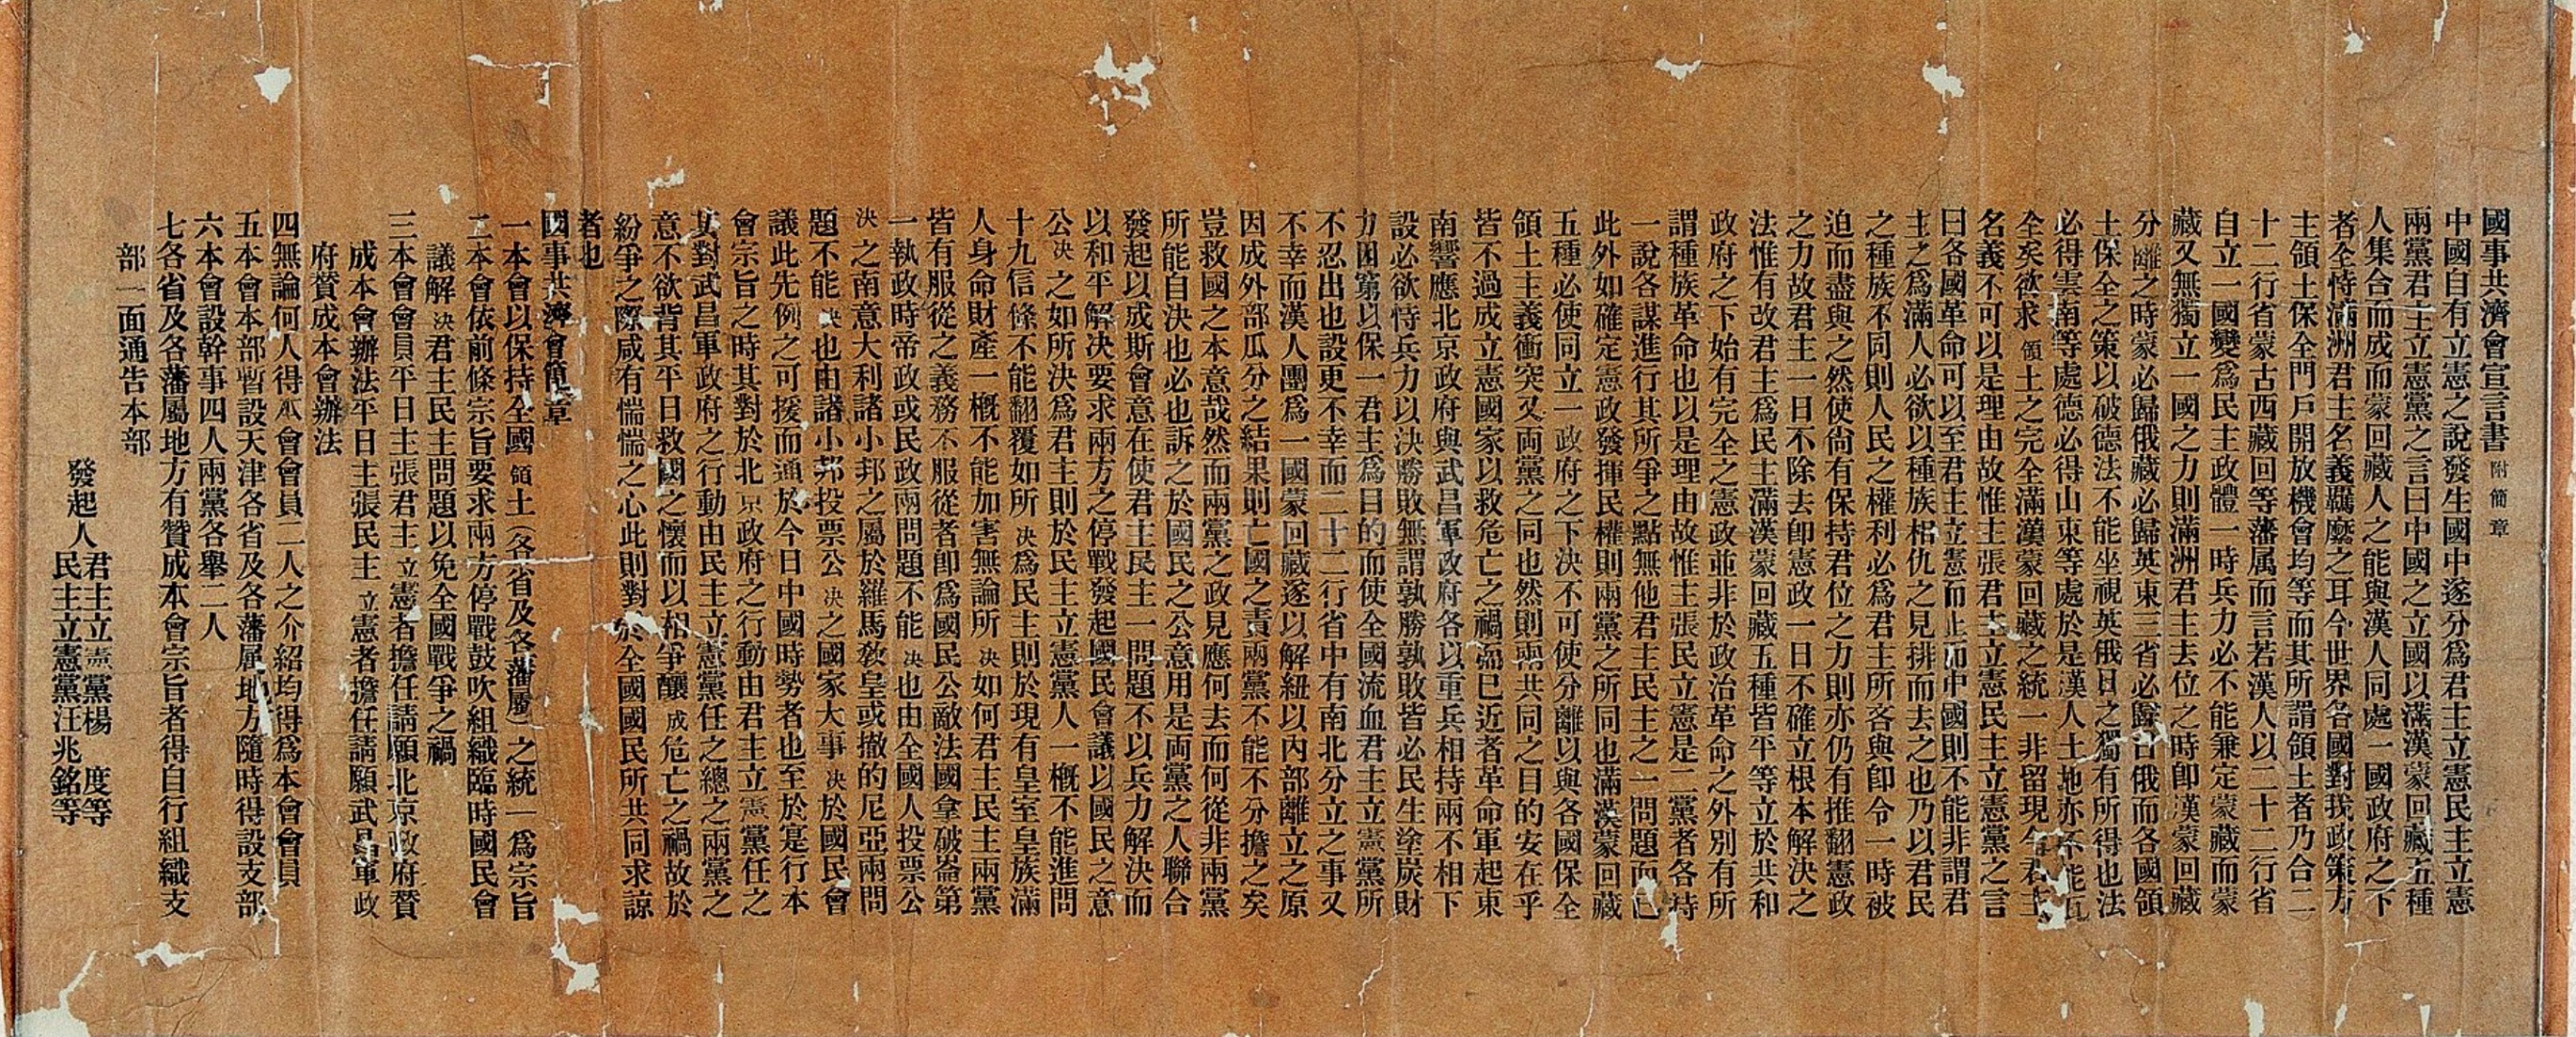 國事共濟會宣言書附簡章
中國自有立憲之說發生國中遂分爲君主立憲民主立憲
兩黨君主立憲黨之言曰中國之立國以滿漢蒙回藏五種
人集合而成而蒙回藏人之能與漢人同處一國政府之下
者全恃滿洲君主名義羈縻之耳今世界各國對我政策方
主領土保全門戶開放機會均等而其所謂領土者乃合二
十二行省蒙古西藏回等藩属而言若漢人以二十二行省
自立一國變爲民主政體一時兵力必不能兼定蒙藏而蒙
藏又無獨立一國之力則滿洲君主去位之時卽漢蒙回藏
分離之時蒙必歸俄藏必歸英東三省必歸日俄而各國領
土保全之策以破德法不能坐視英俄日之獨有所得也法
必得雲南等處德必得山東等處於是漢人土地亦不能瓦
全矣欲求領土之完全滿漢蒙回藏之統一非留現今君主
名義不可以是理由故惟主張君主立憲民主立憲黨之言
曰各國革命可以至君主立憲而止而中國則不能非謂君
主之爲滿人必欲以種族相仇之見排而去之也乃以君民
之種族不同則人民之權利必爲君主所吝與卽令一時被
迫而盡與之然使尙有保持君位之力則亦仍有推翻憲政
之力故君主一日不除去卽憲政一日不確立根本解決之
法惟有改君主爲民主滿漢蒙回藏五種皆平等立於共和
政府之下始有完全之憲政並非於政治革命之外別有所
謂種族革命也以是理由故惟主張民立憲是二黨者各持
一說各謀進行其所爭之點無他君主民主之一問題而已
此外如確定憲政發揮民權則兩黨之所同也滿漢蒙回藏
五種必使同立一政府之下決不可使分離以與各國保全
領土主義衝突又両黨之同也然則兩共同之目的安在乎
皆不過成立憲國家以救危亡之禍而已近者革命軍起東
南響應北京政府與武昌軍政府各以重兵相持兩不相下
設必欲恃兵力以決勝敗無謂孰勝孰敗皆必民生塗炭財
力困窮以保一君主爲目的而使全國流血君主立憲黨所
不忍出也設更不幸而二十二行省中有南北分立之事又
不幸而漢人團爲一國蒙回藏遂以解紐以內部離立之原
因成外部瓜分之結果則亡國之責兩黨不能不分擔之矣
豈救國之本意哉然而兩黨之政見應何去而何從非兩黨
所能自決也必也訴之於國民之公意用是両黨之人聯合
發起以成斯會意在使君主民主一問題不以兵力解決而
以和平解決要求兩方之停戰發起國民會議以國民之意
公決之如所決爲君主則於民主立憲黨人一概不能進問
十九信條不能翻覆如所決爲民主則於現有皇室皇族滿
人身命財產一概不能加害無論所決如何君主民主兩黨
皆有服從之義務不服從者卽爲國民公敵法國拿破崙第
一執政時帝政或民政兩問題不能決也由全國人投票公
決之南意大利諸小邦之屬於羅馬敎皇或撤的尼亞兩問
題不能決也由諸小邦投票公決之國家大事決於國民會
議此先例之可援而通於今日中國時勢者也至於寔行本
會宗旨之時其對於北京政府之行動由君主立憲黨任之
其對武昌軍政府之行動由民主立憲黨任之總之兩黨之
意不欲背其平日救國之懷而以相爭釀成危亡之禍故於
紛爭之際咸有惴惴之心此則對於全國國民所共同求諒
者也
國事共濟會簡章
一本會以保持全國領土（各省及各藩屬）之統一爲宗旨
二本會依前條宗旨要求兩方停戰鼓吹組織臨時國民會
議解決君主民主問題以免全國戰爭之禍
三本會會員平日主張君主立憲者擔任請願北京政府贊
成本會辦法平日主張民主立憲者擔任請願武昌軍政
府贊成本會辦法
四無論何人得本會會員二人之介紹均得爲本會會員
五本會本部暫設天津各省及各藩屬地方隨時得設支部
六本會設幹事四人兩黨各舉二人
七各省及各藩屬地方有贊成本會宗旨者得自行組織支
部一面通告本部
發起人君主立憲黨楊度等
民主立憲黨汪兆銘等